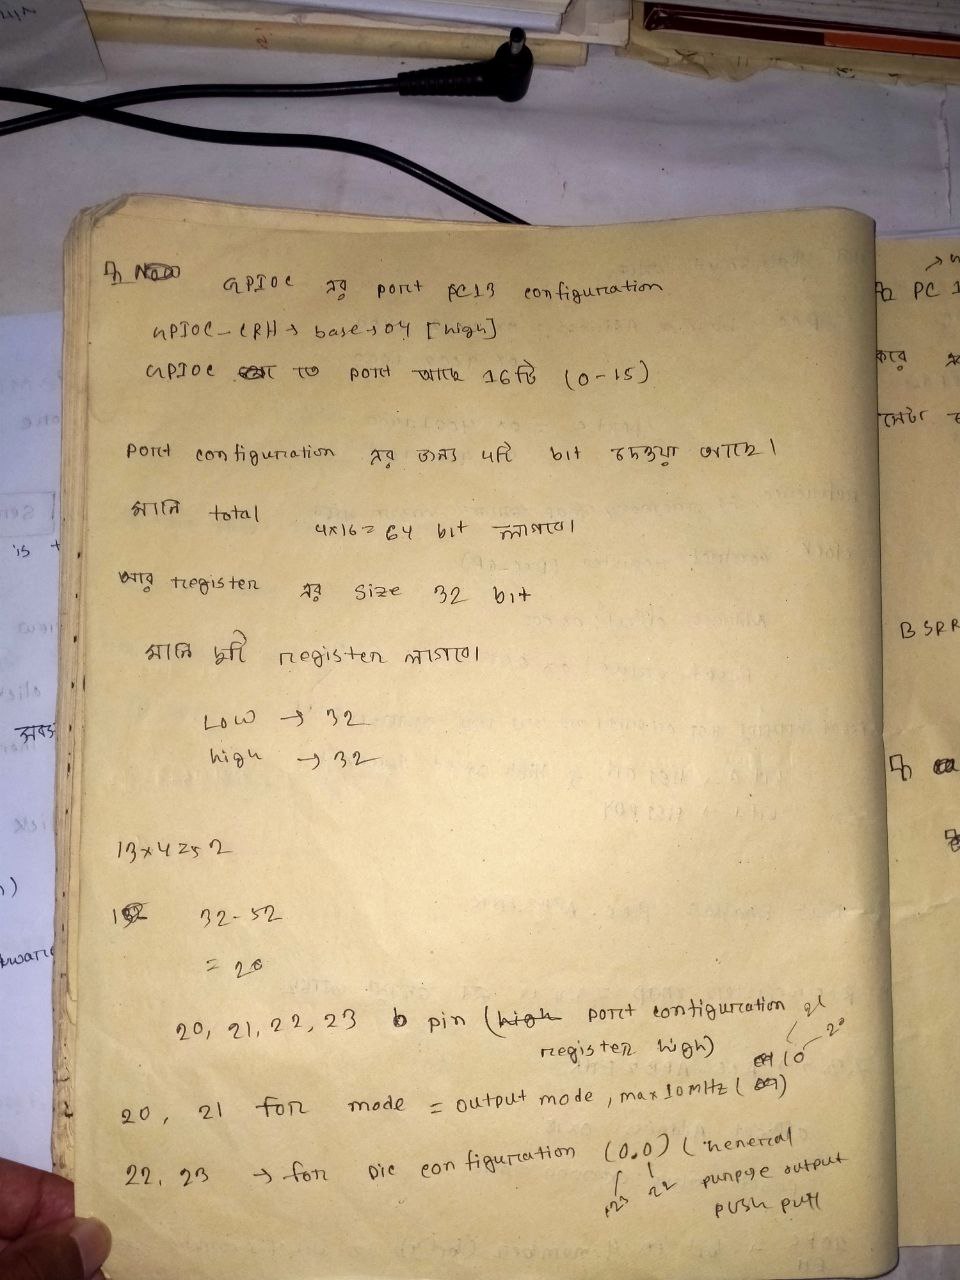 GPIOC এর port PC13 configuration
GPIOC-CRH → base → 04 [high]
GPIOC তে port আছে 16টি (0-15)
port configuration এর জন্য 4টি bit দেওয়া আছে।
মানে total 4x16 = 64 bit লাগবে।
আর register এর size 32 bit
মানে দুটি register লাগবে।
Low → 32
high → 32
13x4=52
32-52
= 20
20, 21, 22, 23 pin (high port configuration
register high)
21
20
10
20, 21 for mode = output mode, max 10MHz ( )
22, 23 → for configuration (0,0) ( General
23 22 output
push pull
PC 1
করে
BSRR
is